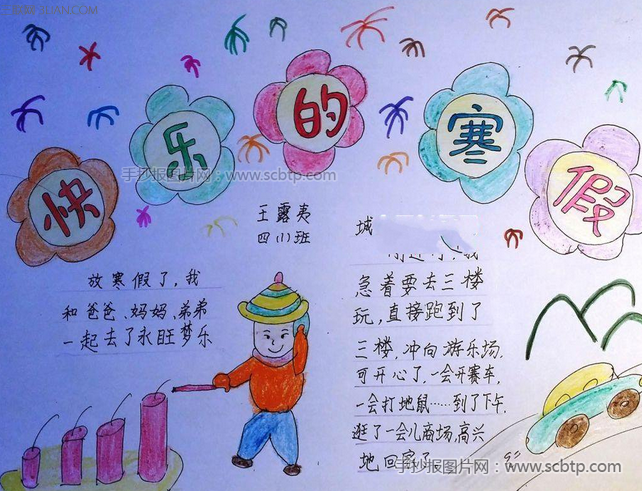 快乐的寒假
手抄报图片网：www.scbtp.com
王露夷
四(1)班
城
放寒假了，我
和爸爸、妈妈、弟弟
一起去了永旺梦乐
急着要去三楼
玩，直接跑到了
三楼，冲向游乐场，
可开心了，一会开赛车，
一会打地鼠……到了下午，
逛了一会儿商场，高兴
地回家了。
手抄报图片网：www.scbtp.com